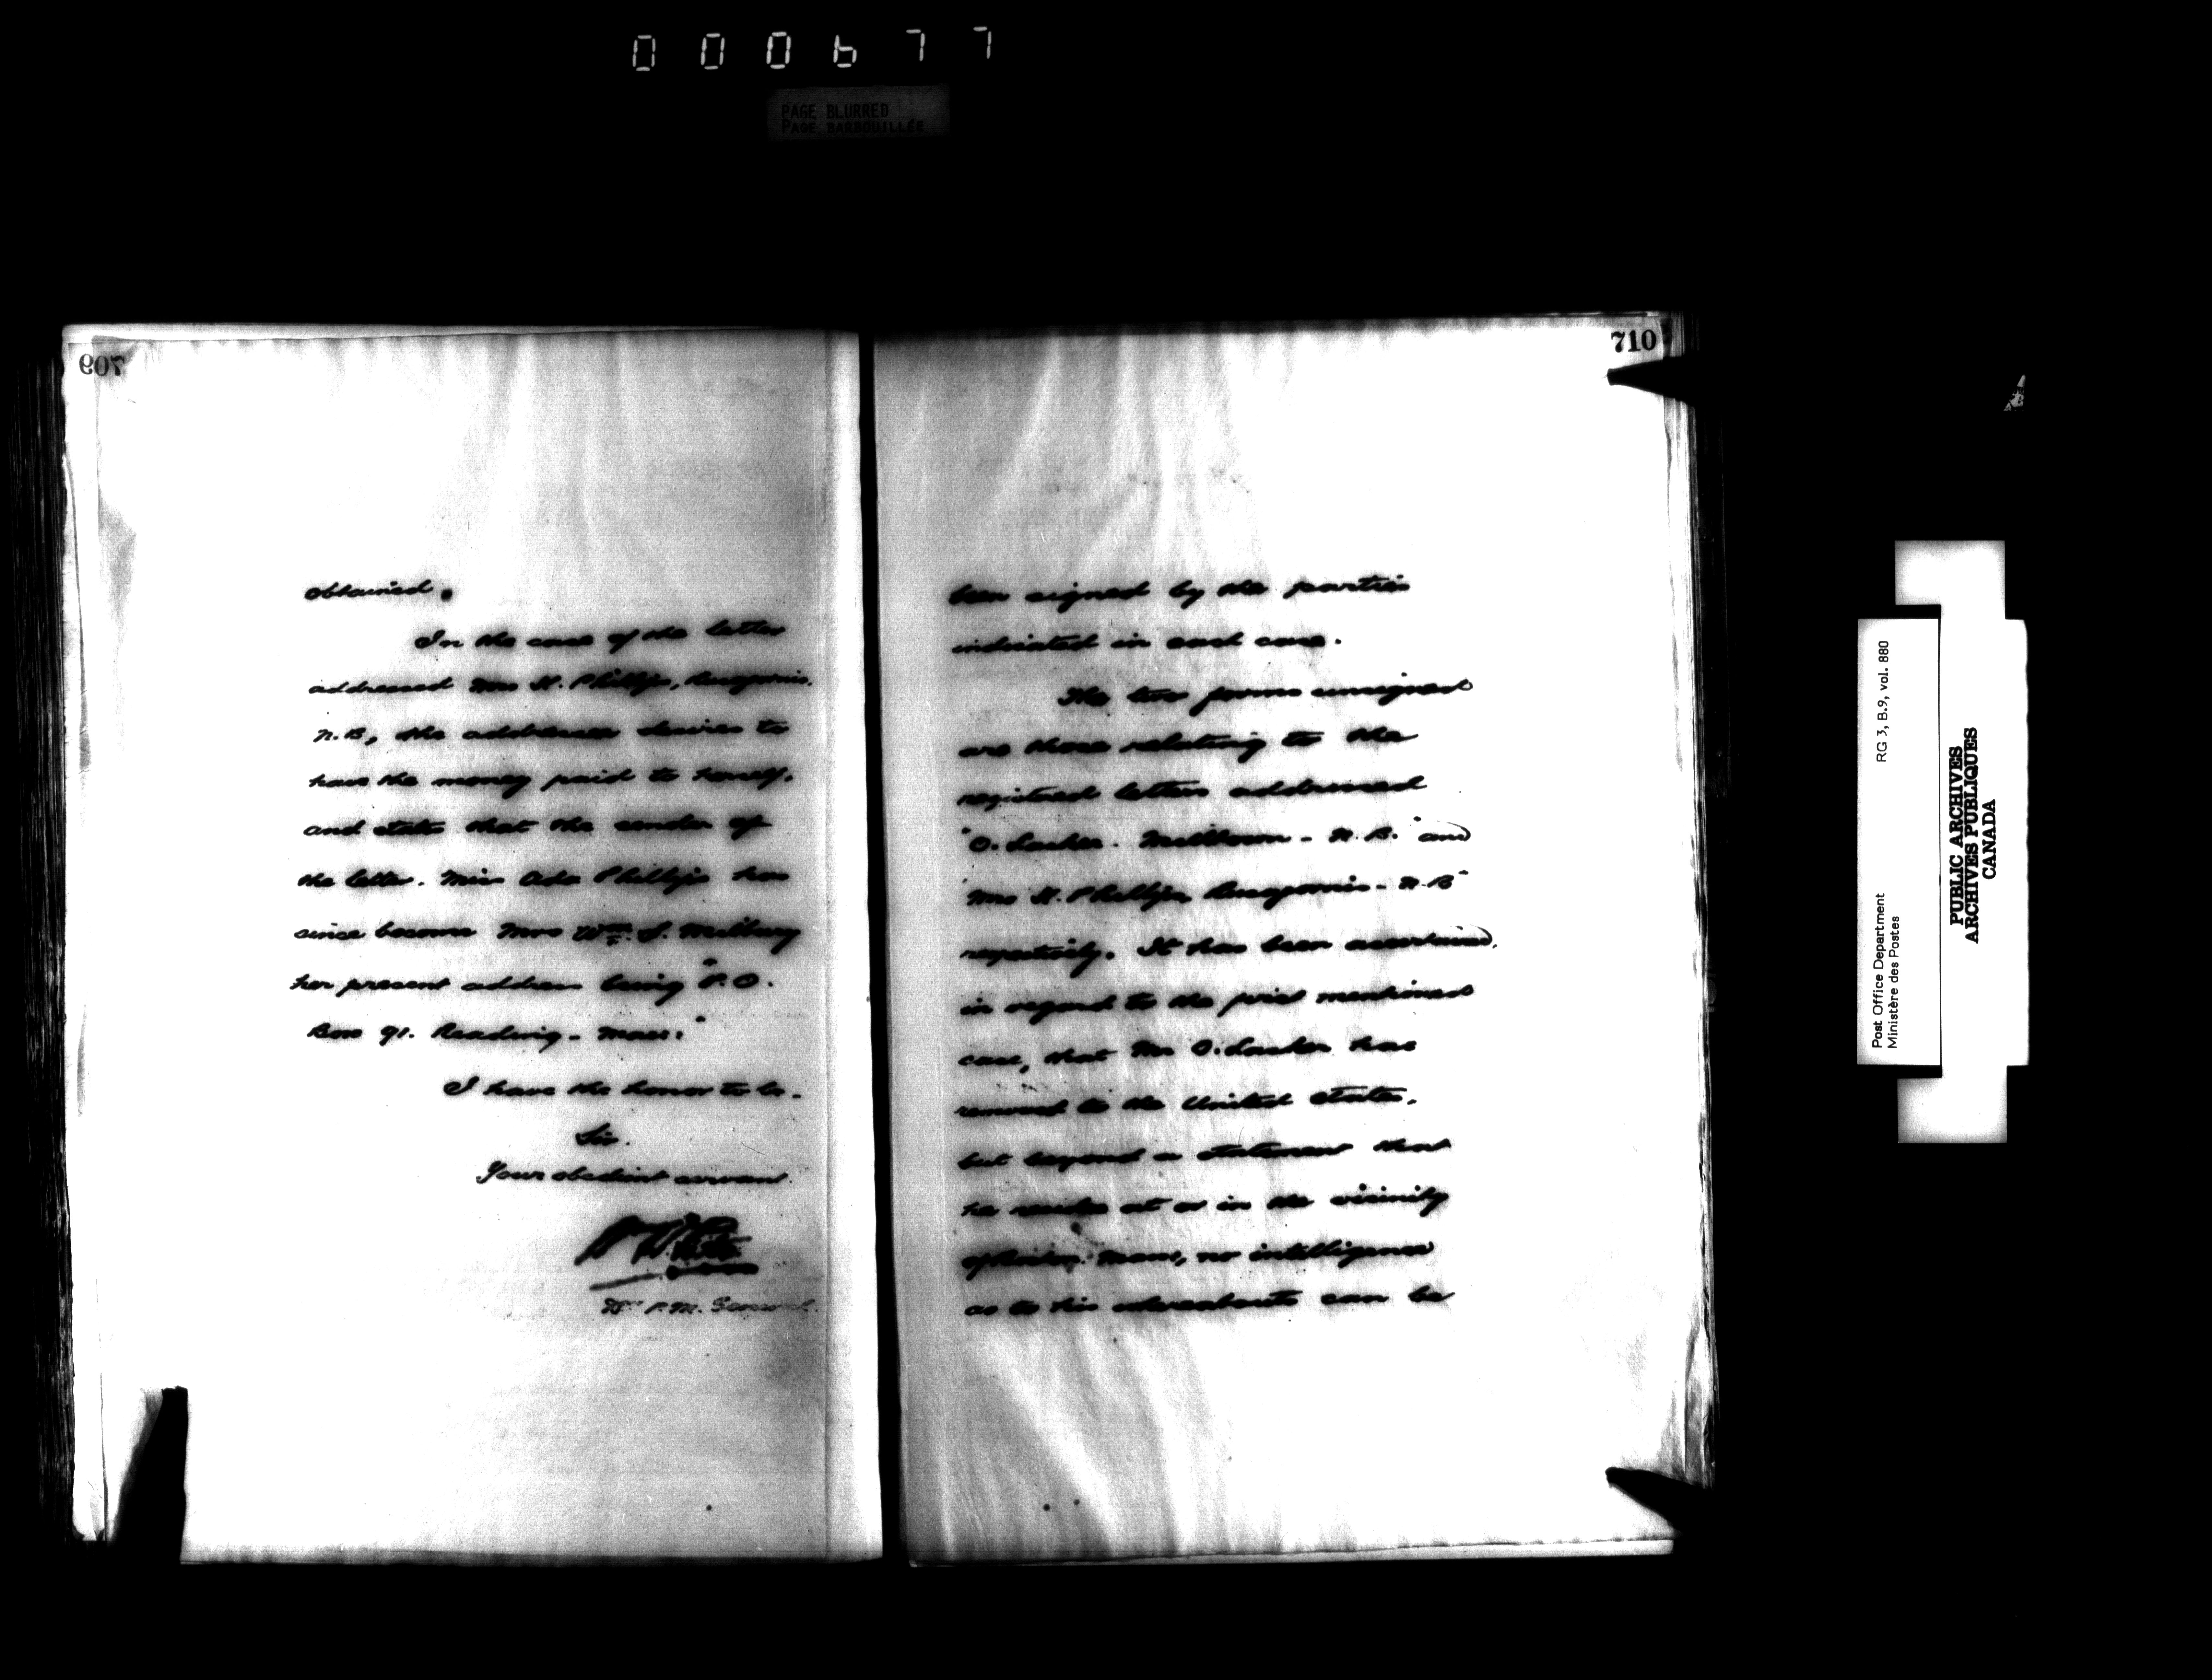 000677
PAGE BLURRED
PAGE BARBOUILLÉE
709
obtained.
In the case of the letter
addressed Mrs H. Phillips,
N.B., the addressee desires to
have the money paid to herself,
and states that the sender of
the letter. Miss Ada Phillips has
since become Mrs Wm. S. Milbury
her present address being "P.O.
Box 91. Reading - Mass."
I have the honor to be.
Sir.
Your obedient servant.
Dy P.M. General.
710
been signed by the parties
indicated in each case.
The two forms unsigned
are those relating to the
registered letters addressed
"O. Milltown - N.B." and
"Mrs H. Phillips - N.B"
respectively. It has been ascertained,
in regard to the first mentioned
case, that Mr O. has
removed to the United States,
but beyond a statement that
he resides at or in the vicinity
of Mass, no intelligence
as to his whereabouts can be
Post Office Department
Ministère des Postes
RG 3, B.9, vol. 880
PUBLIC ARCHIVES
ARCHIVES PUBLIQUES
CANADA